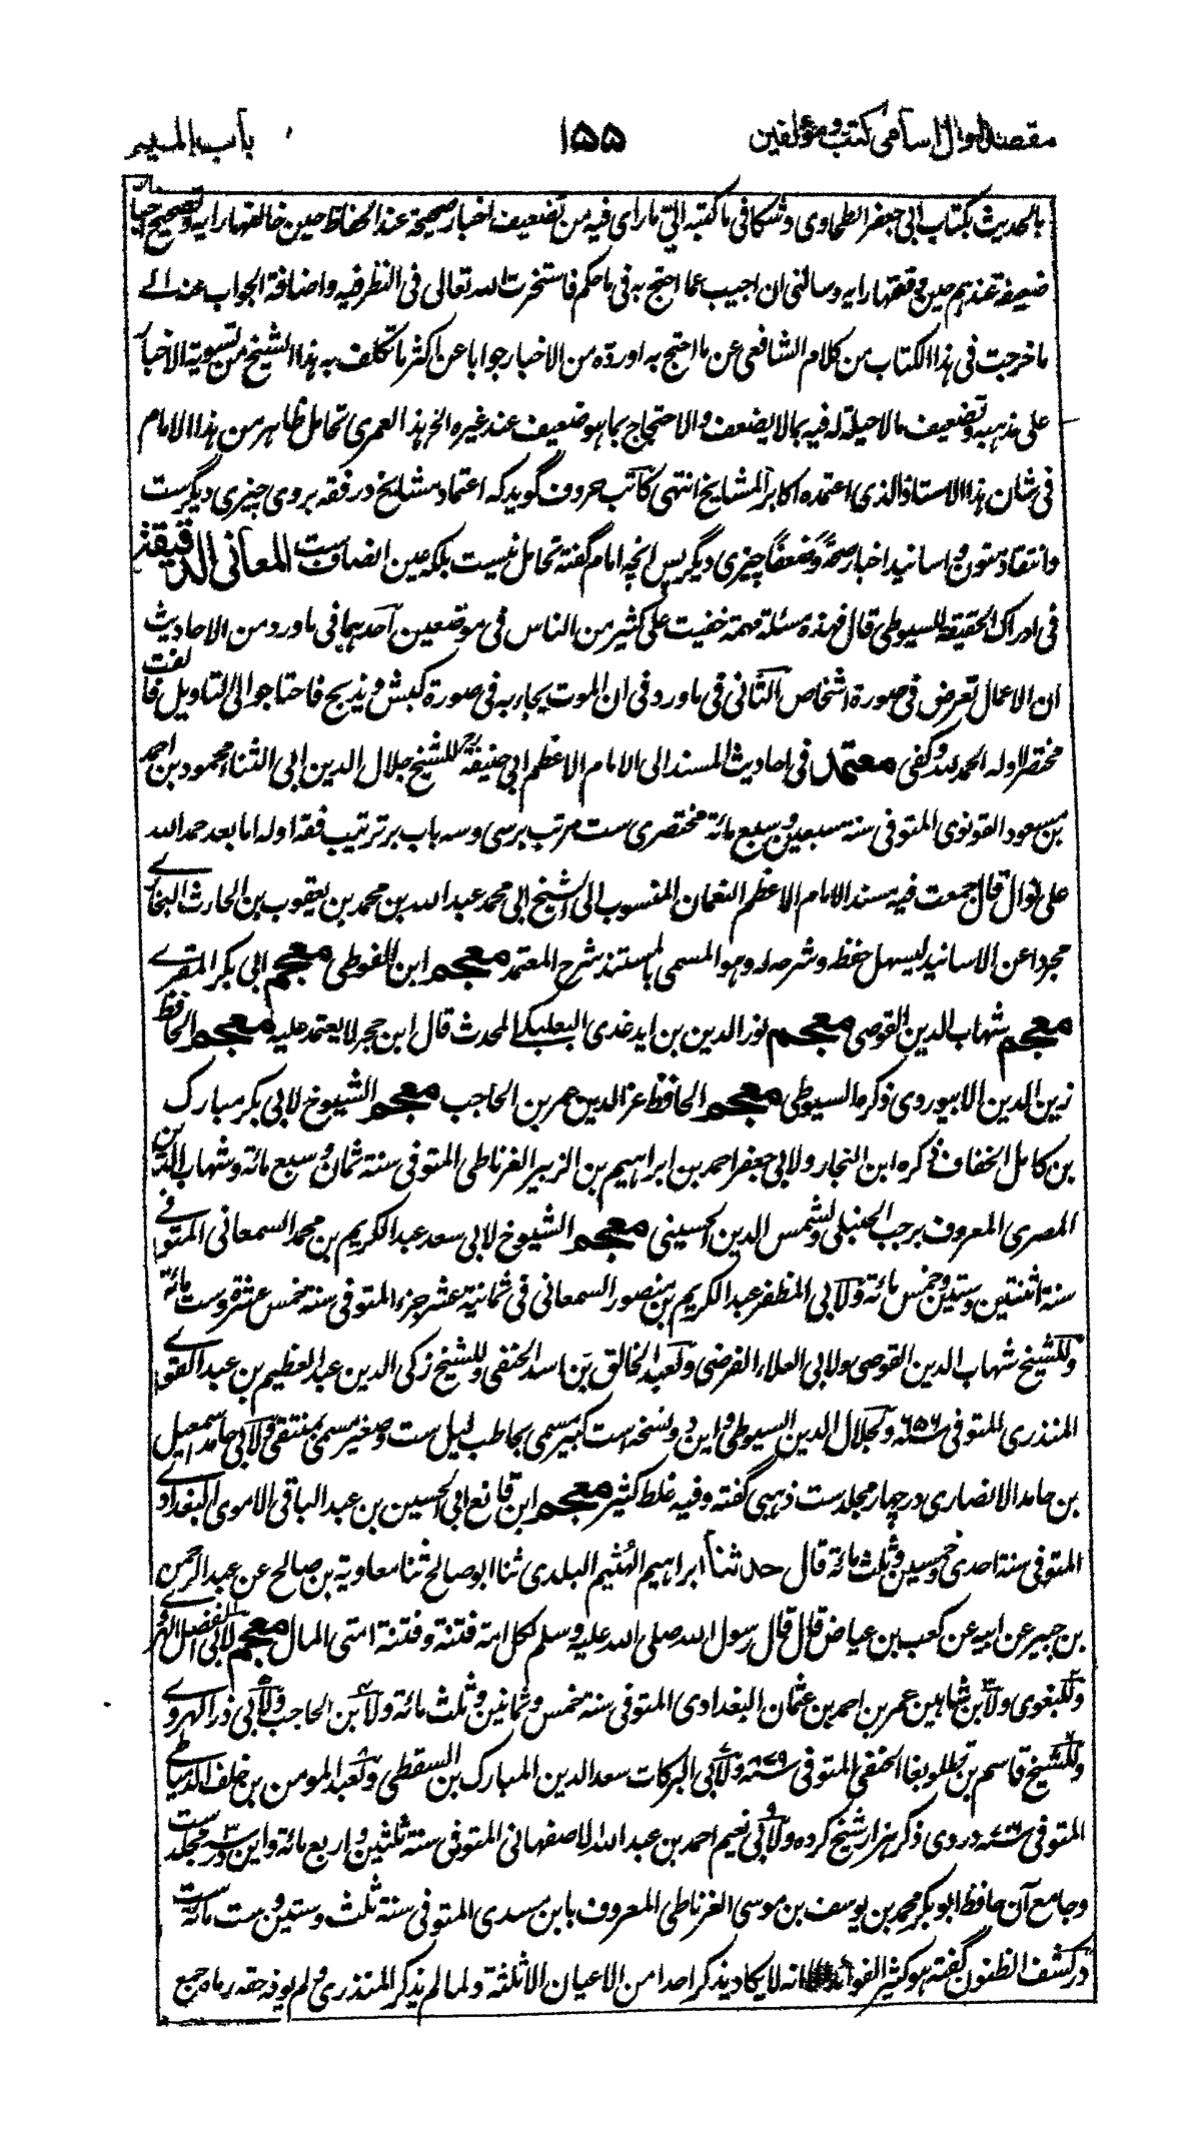 مقصد اول در اسامی کتب و مؤلفین ۱۵۵ باب المیم
بالحدیث بکتاب ابی جعفر الطحاوی و شکا فی ما کتبه الی ما رای فیه من تضعیف اخبار صحیحة عند الحفاظ حین خالفها رایه و تصحیح اخبار
ضعیفة عندهم حین وافقها رایه و سالنی ان اجیب عما احتج به فی ما حکم فاستخرت الله تعالی فی النظر فیه و اضافة الجواب عنه الی
ما خرجت فی هذا الکتاب من کلام الشافعی عن ما احتج به او رده من الاخبار جوابا عن اکثر ما تکلف به هذا الشیخ من تسویة الاخبار
علی مذهبه و تضعیف ما لا حیلة له فیه بما لا یضعف و الاحتجاج بما هو ضعیف عند غیره الخ هذا العمری تحامل ظاهر من هذا الامام
فی شان هذا الاستاذ الذی اعتمده اکابر المشایخ انتهی کاتب حروف گوید که اعتماد مشایخ در فقه بر وی چیزی دیگرست
و انتقاد متون و اسانید اخبار صحة و ضعفا چیزی دیگر پس انچه امام گفته تحامل نیست بلکه عین انصاف ست المعانی الدقیقة
فی ادراک الحقیقة للسیوطی قال فهذه مسئلة مهمة خفیت علی کثیر من الناس فی موضعین احدهما فی ما ورد من الاحادیث
ان الاعمال تعرض فی صورة اشخاص الثانی فی ما ورد فی ان الموت یجاء به فی صورة کبش و یذبح فاحتاجوا الی التاویل فالفت
مختصرا اوله الحمد لله و کفی معتمد فی احادیث المسند الی الامام الاعظم ابی حنیفة رح للشیخ جلال الدین ابی الثناء محمود بن احمد
بن مسعود القونوی المتوفی سنة سبعین و سبع مائة مختصری ست مرتب بر سی و سه باب بر ترتیب فقه اوله اما بعد حمد الله
علی نواله قال جمعت فیه مسند الامام الاعظم النعمان المنسوب الی الشیخ ابی محمد عبد الله بن محمد بن یعقوب بن الحارث البخاری
مجردا عن الاسانید لیسهل حفظه و شرحه له و هو المسمی بالمستند شرح المعتمد معجم ابن الفوطی معجم ابی بکر المقری
معجم شهاب الدین القوصی معجم نور الدین بن ایدغدی البعلبکی المحدث قال ابن حجر لا یعتمد علیه معجم الحافظ
زین الدین الابیوردی ذکره السیوطی معجم الحافظ عز الدین عمر بن الحاجب معجم الشیوخ لابی بکر مبارک
بن کامل الخفاف ذکره ابن النجار و لابی جعفر احمد بن ابراهیم بن الزبیر الغرناطی المتوفی سنة ثمان و سبع مائة و شهاب الدین
المصری المعروف برجب الحنبلی و لشمس الدین الحسینی معجم الشیوخ لابی سعد عبد الکریم بن محمد السمعانی المتوفی
سنة اثنتین و ستین و خمس مائة و لابی المظفر عبد الکریم بن منصور السمعانی فی ثمانیة عشر جزء المتوفی سنة خمس عشرة و ست مائة
و للشیخ شهاب الدین القوصی و لابی العلاء الفرضی و لعبد الخالق بن اسد الحنفی و للشیخ زکی الدین عبد العظیم بن عبد القوی
المنذری المتوفی سنه ۶۵۶ و لجلال الدین السیوطی و این دو نسخه است کبیر مسمی بحاطب لیل ست و صغیر مسمی بمنتقی و لابی حامد اسمعیل
بن حامد الانصاری در چهار مجلد ست ذهبی گفته و فیه غلط کثیر معجم ابن قانع ابی الحسین بن عبد الباقی الاموی البغدادی
المتوفی سنة احدی و خمسین و ثلث مائة قال حدثنا ابراهیم الهیثم البلدی ثنا ابو صالح ثنا معاویة بن صالح عن عبد الرحمن
بن جبیر عن ابیه عن کعب بن عیاض قال قال رسول الله صلی الله علیه و سلم لکل امة فتنة و فتنة امتی المال معجم لابی الفضل
و للبغوی و لابن شاهین عمر بن احمد بن عثمان البغدادی المتوفی سنة خمس و ثمانین و ثلث مائة و لابن الحاجب و لابی ذر الهروی
و للشیخ قاسم بن قطلوبغا الحنفی المتوفی سنه ۸۷۹ و لابی البرکات سعد الدین المبارک بن السقطی و لعبد المومن بن خلف الدمیاطی
المتوفی سنه در وی ذکر هزار شیخ کرده و لابی نعیم احمد بن عبد الله الاصفهانی المتوفی سنة ثلثین و اربع مائة و این در سه مجلد ست
و جامع آن حافظ ابو بکر محمد بن یوسف بن موسی الغرناطی المعروف بابن مسدی المتوفی سنة ثلث و ستین و ست مائة ست
در کشف الظنون گفته هو کثیر الفوائد انه لا یکاد یذکر احدا من الاعیان الا ثلثة و لما لم یذکر المنذری و لم یوفه حقه رماه جمع